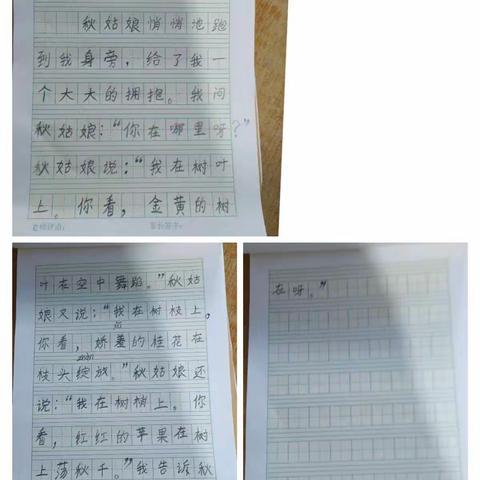 秋姑娘悄悄地跑
到我身旁，给了我一
个大大的拥抱。我问
秋姑娘：“你在哪里呀？”
秋姑娘说：“我在树叶
上。你看，金黄的树
老师评语： 家长签字：
叶在空中舞蹈。”秋姑
娘又说：“我在树枝上。
你看，娇羞的桂花在
枝头绽放。”秋姑娘还
说：“我在树梢上。你
看，红红的苹果在树
上荡秋千。”我告诉秋
在呀。”